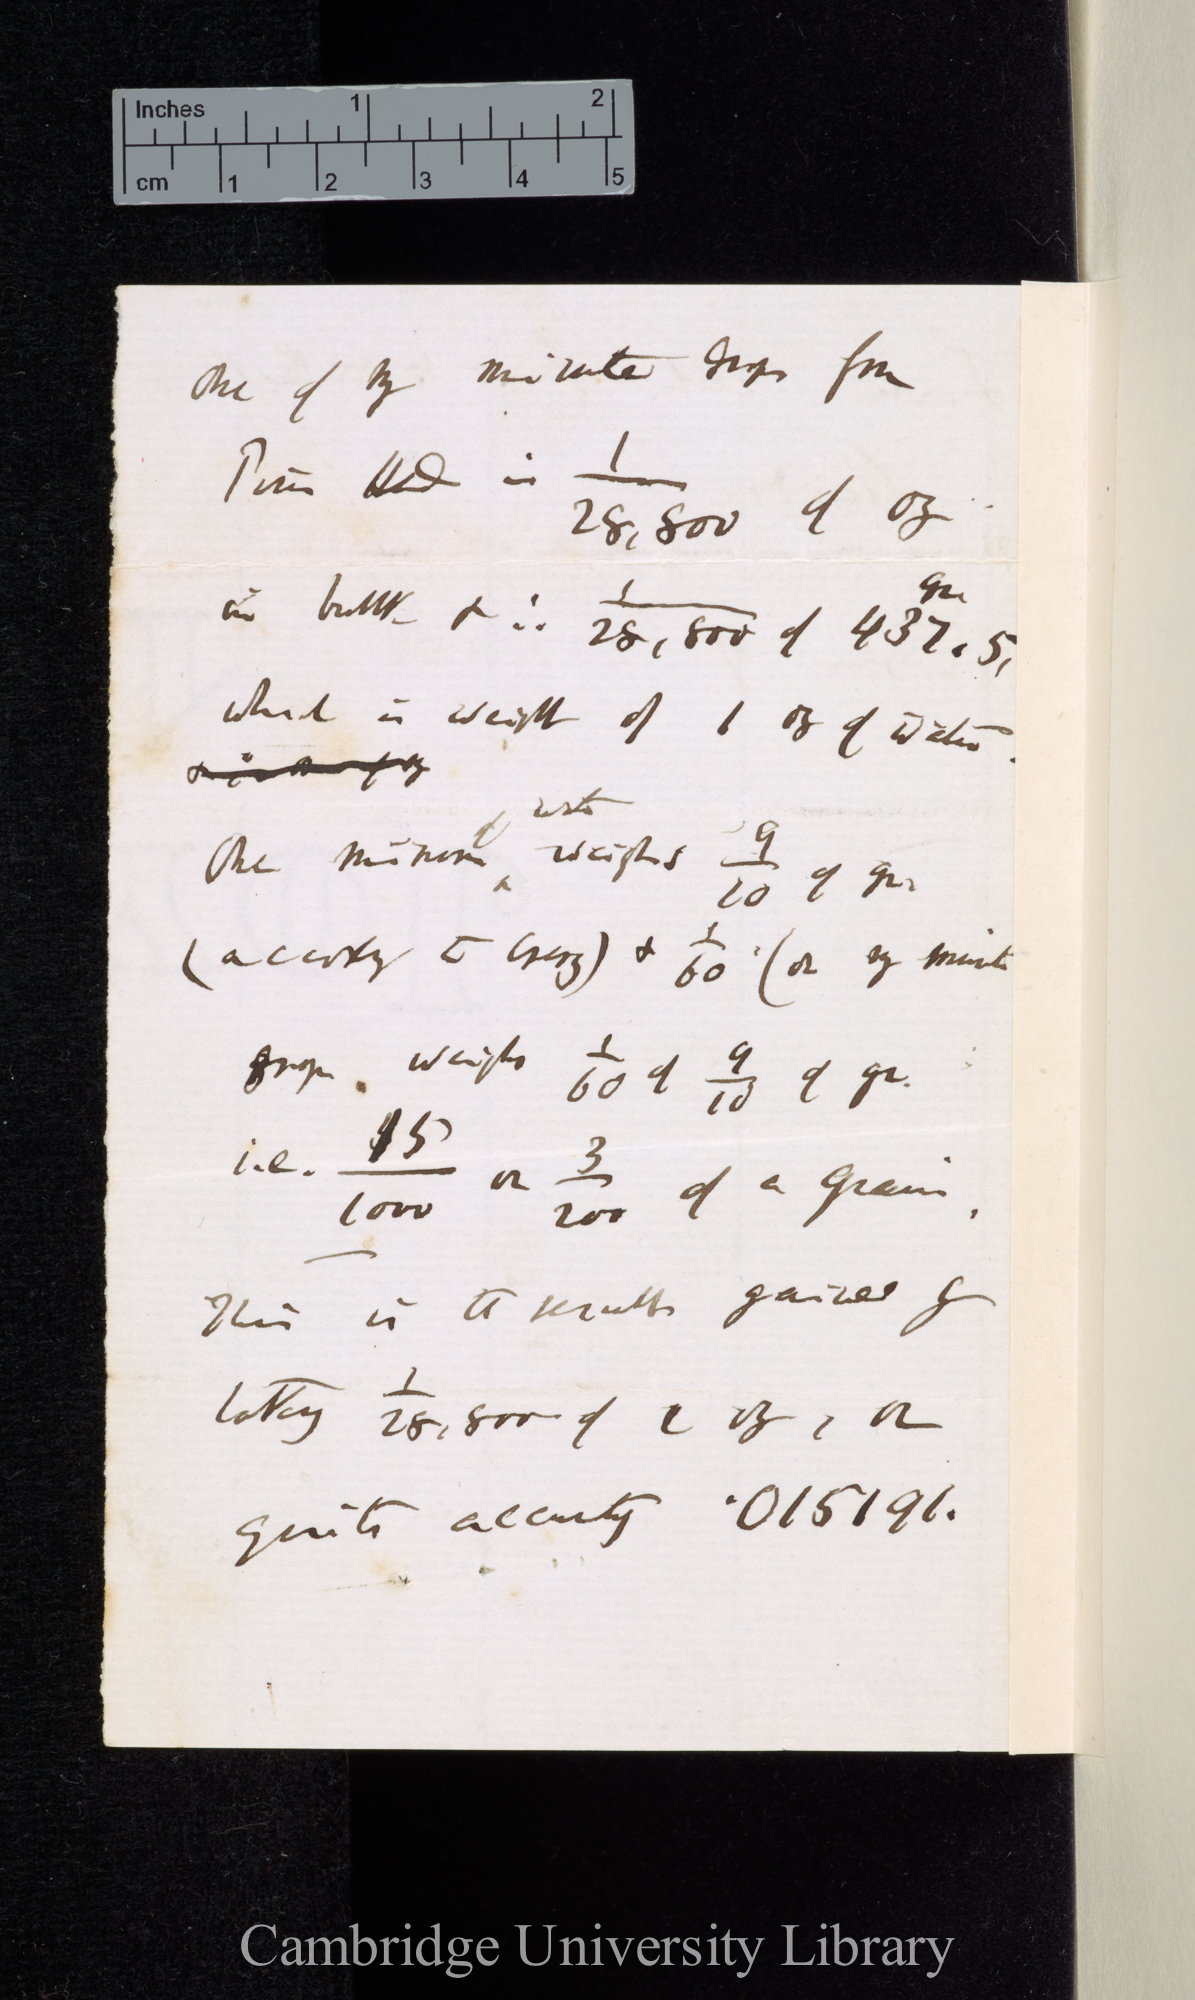 Inches 1 2
cm 1 2 3 4 5
One of my minute drops from
Pin's Head is 1/28,800 of oz
in bulk & is 1/28,800 of 437.5, gr.
which is weight of 1 oz of water.
One minim of water weighs 9/10 of gr.
(according to ) & 1/60 (or my minute
drops weighs 1/60 of 9/10 of gr.
i.e. 15/1000 or 3/200 of a grain,
This is the results gained by
taking 1/28,800 of 1 oz, or
quite accurately ·015191.
Cambridge University Library